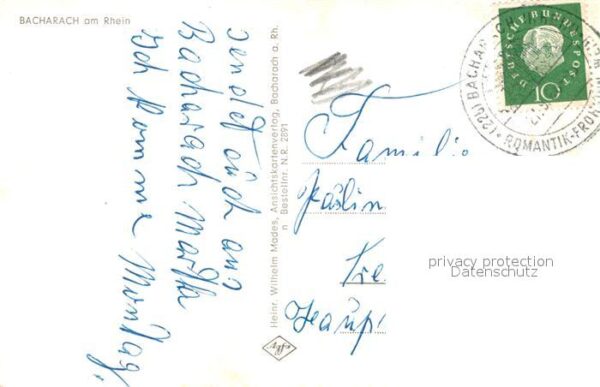 BACHARACH am Rhein
sendet euch aus
Bacharach Martha
Ich komme Montag.
Heinr. Wilhelm Mades, Ansichtskartenverlag, Bacharach a. Rh.
n Bestellnr. N.R. 2891
DEUTSCHE BUNDESPOST
10
(22b) BACHARACH
ROMANTIK-FROH
Familie
privacy protection
Datenschutz